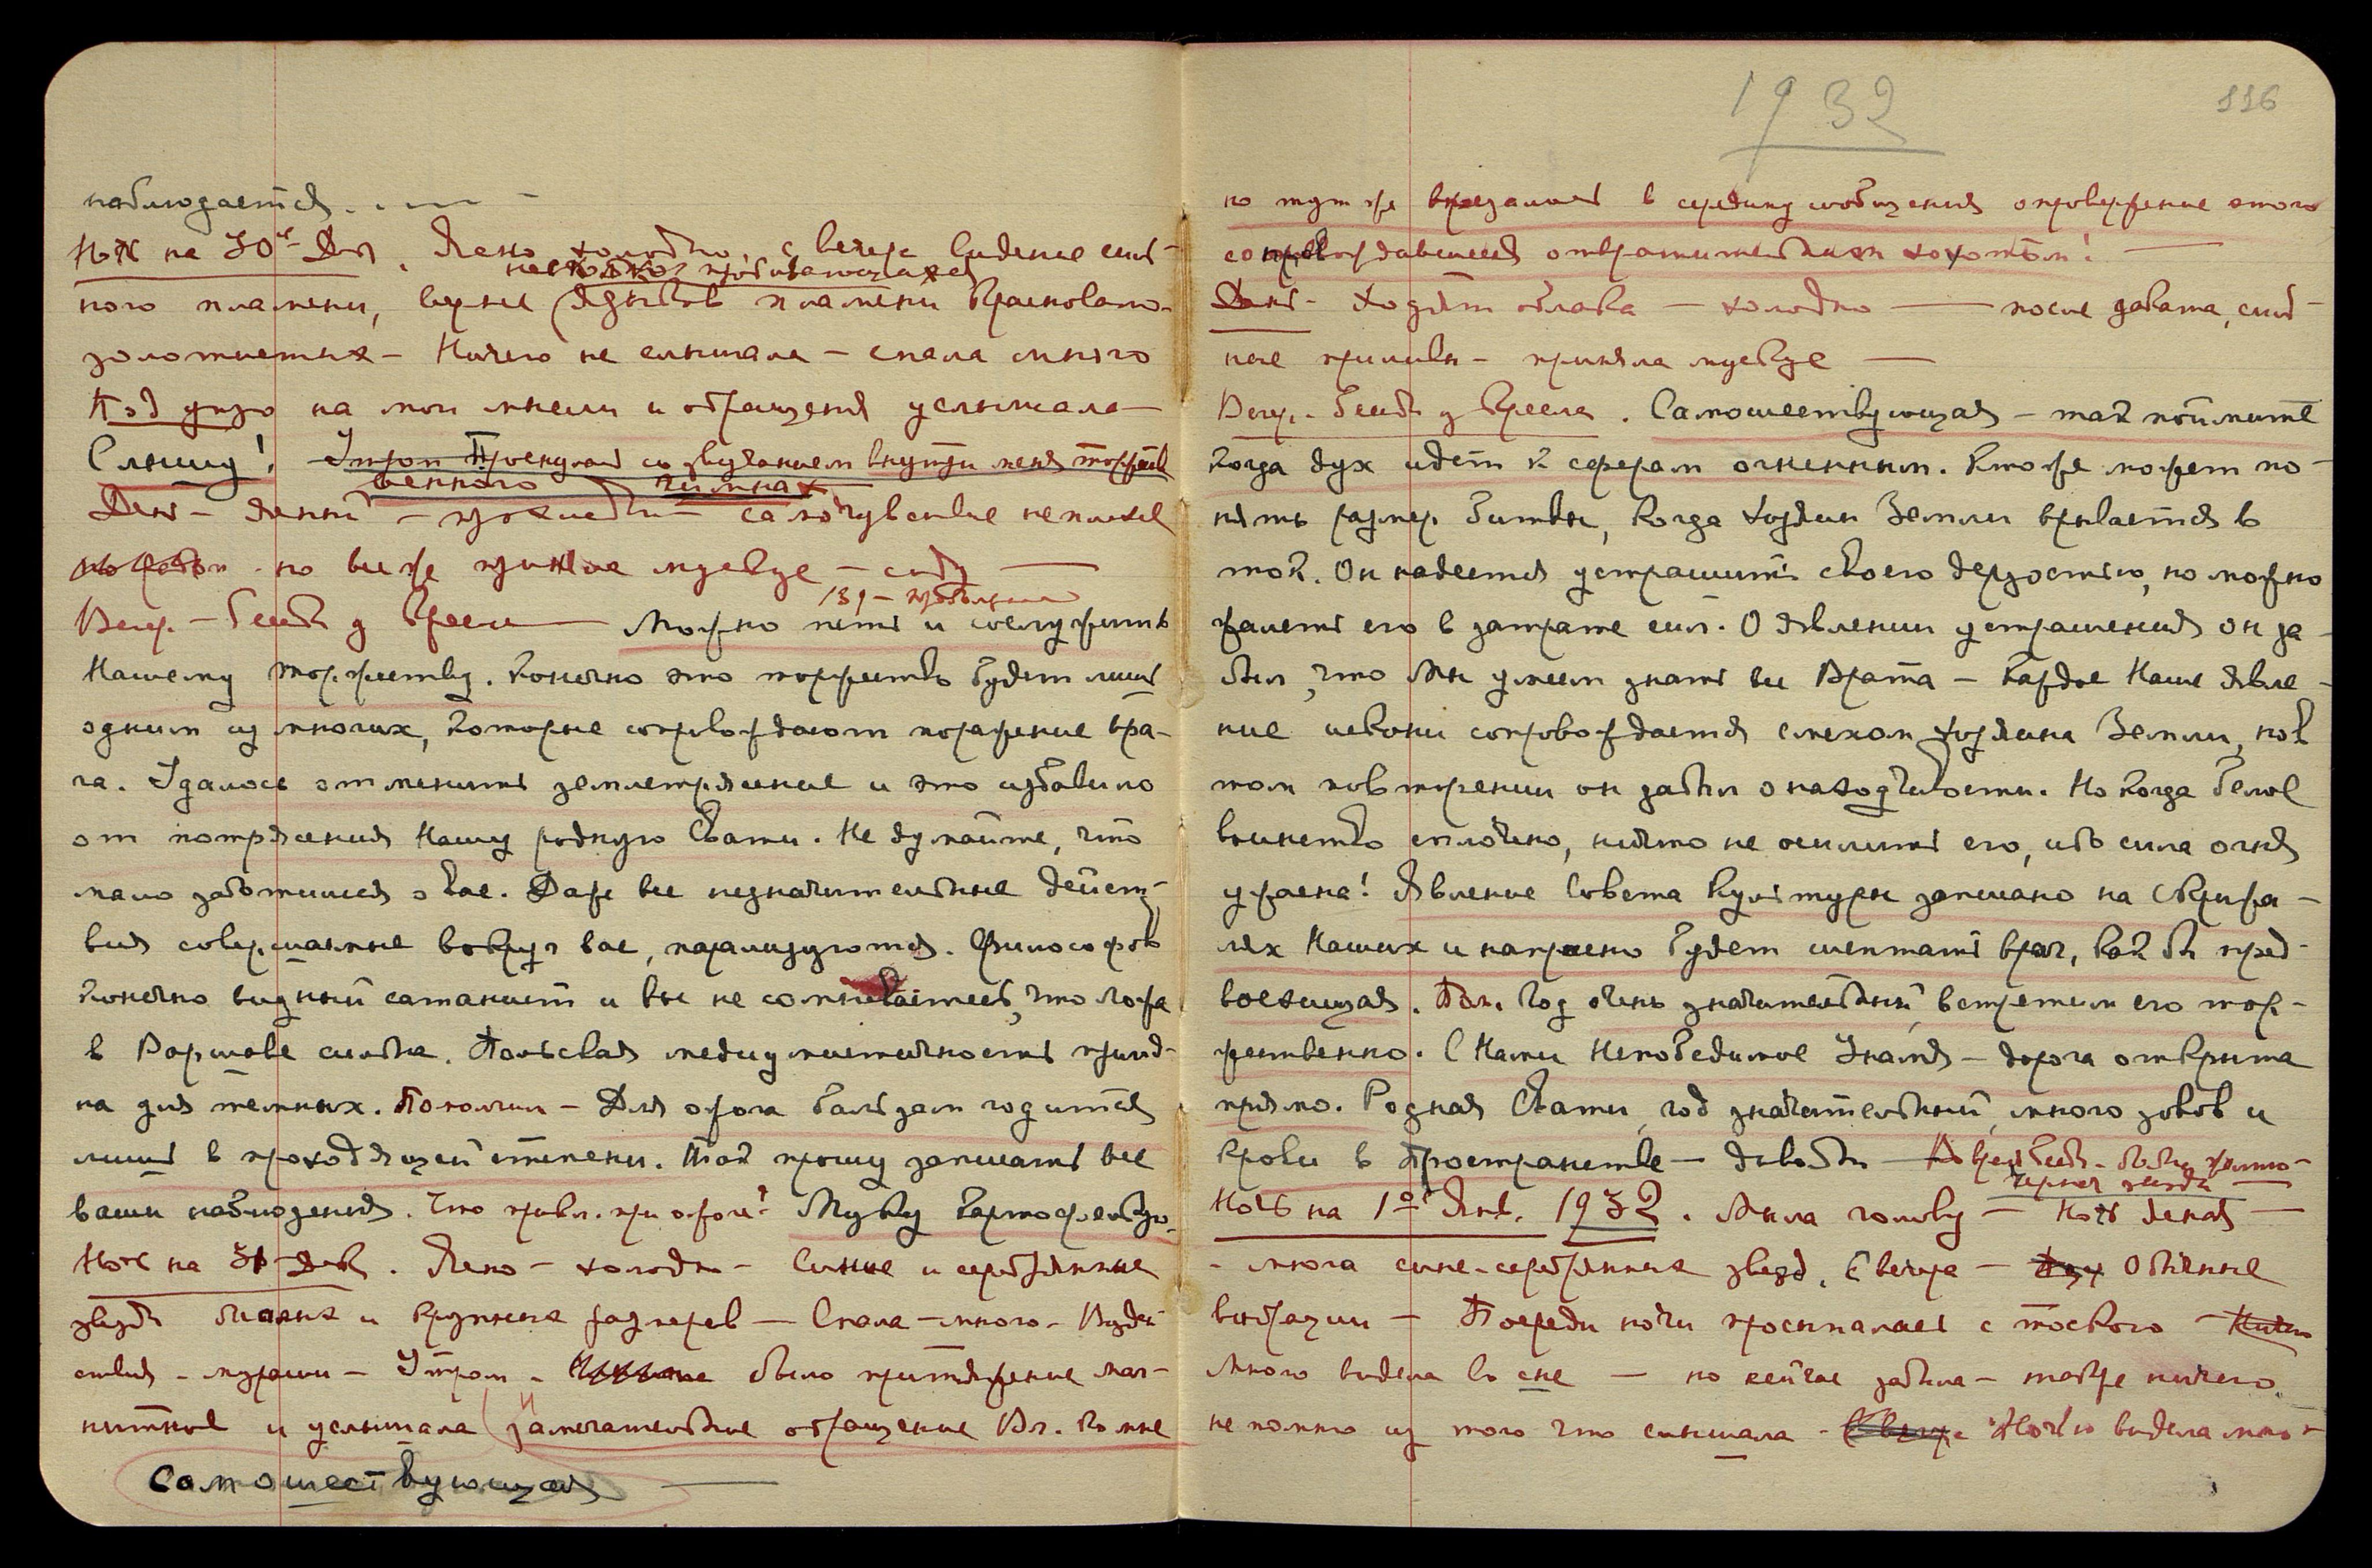 наблюдается. - - —
Ночь на 30ое Дек. Ясно холодно, с вечера видение силь-
нескольких пробивающихся
ного пламени, вернее языков пламени красновато-
золотистых — Ничего не слышала — спала много
Под утро на мои мысли и обращения услышала —
Слышу! Утром Проснулась со звучанием внутри меня торжест
венного гимна
День — ясный — прохладно — самочувствие неплохое
но все же приняла мускус — соду —
Вечер. — Беседа у кресла — Можно петь и сослужить
Нашему торжеству. Конечно это торжество будет лишь
одним из многих, которые сопровождают поражение вра-
га. Удалось отменить землетрясение и это избавило
от потрясения Нашу родную Свати. Не думайте, что
мало заботимся о вас. Даже все незначительные дейст-
вия совершаемые вокруг вас, парализуются. Философов
конечно видный сатанист и вы не сомневайтесь, что ложа
в Варшаве сильна. Польская медиумистичность пригод-
на для темных. Пополни — Для ожога бальзам годится
лишь в проходящей степени. Так прошу записать все
ваши наблюдения. Что примен. при ожоге? Муку картофельную.
Ночь на 31 Дек. Ясно — холодно — Синие и серебрянные
звезды близких и крупных размеров — Спала — много. Воздей
ствия — мураши — Утром — было притяжение маг-
нитное и услышала замечательное обращение Вл. ко мне
Самошествующая —
1932
116
но тут же врезалось в середину сообщения опровержение этого
сопровождавшееся отвратительным хохотом! —
День — Ходят облака — холодно — после заката, силь-
ные приливы — приняла мускус —
Вечер. Беседа у кресла. Самошествующая — так поймите
когда дух идет к сферам огненным. Кто же может по-
нять размер битвы, когда Хозяин Земли врывается в
ток. Он надеется устрашить своею дерзостью, но можно
жалеть его в затрате сил. О явлении устрашения он за-
был, что Мы умеем знать все Врата — каждое Наше явле-
ние искони сопровождается смехом Хозяина Земли, но в
том повторении он забыл о находчивости. Но когда белое
воинство сплочено, ничто не осилит его, ибо сила огня
ужасна! Явление Совета Культуры записано на Скрижа-
лях Наших и напрасно будет шептать враг, как бы пред-
восхищая. Пол. Год очень значительный, встретим его тор-
жественно. С Нами Непобедимое Знамя — дорога открыта
прямо. Родная Свати, год значительный, много зовов и
крови в Пространстве — довольно — Во время Беседы были
черная звезда —
Ночь на 1ое Янв. 1932. Мыла голову — Ночь ясная —
— много сине-серебрянных звезд. С вечера — Обычные
вибрации — Посреди ночи просыпалась с тоскою —
Много видела во сне — но сейчас забыла — также ничего
не помню из того что слышала — Ночью видела мно-